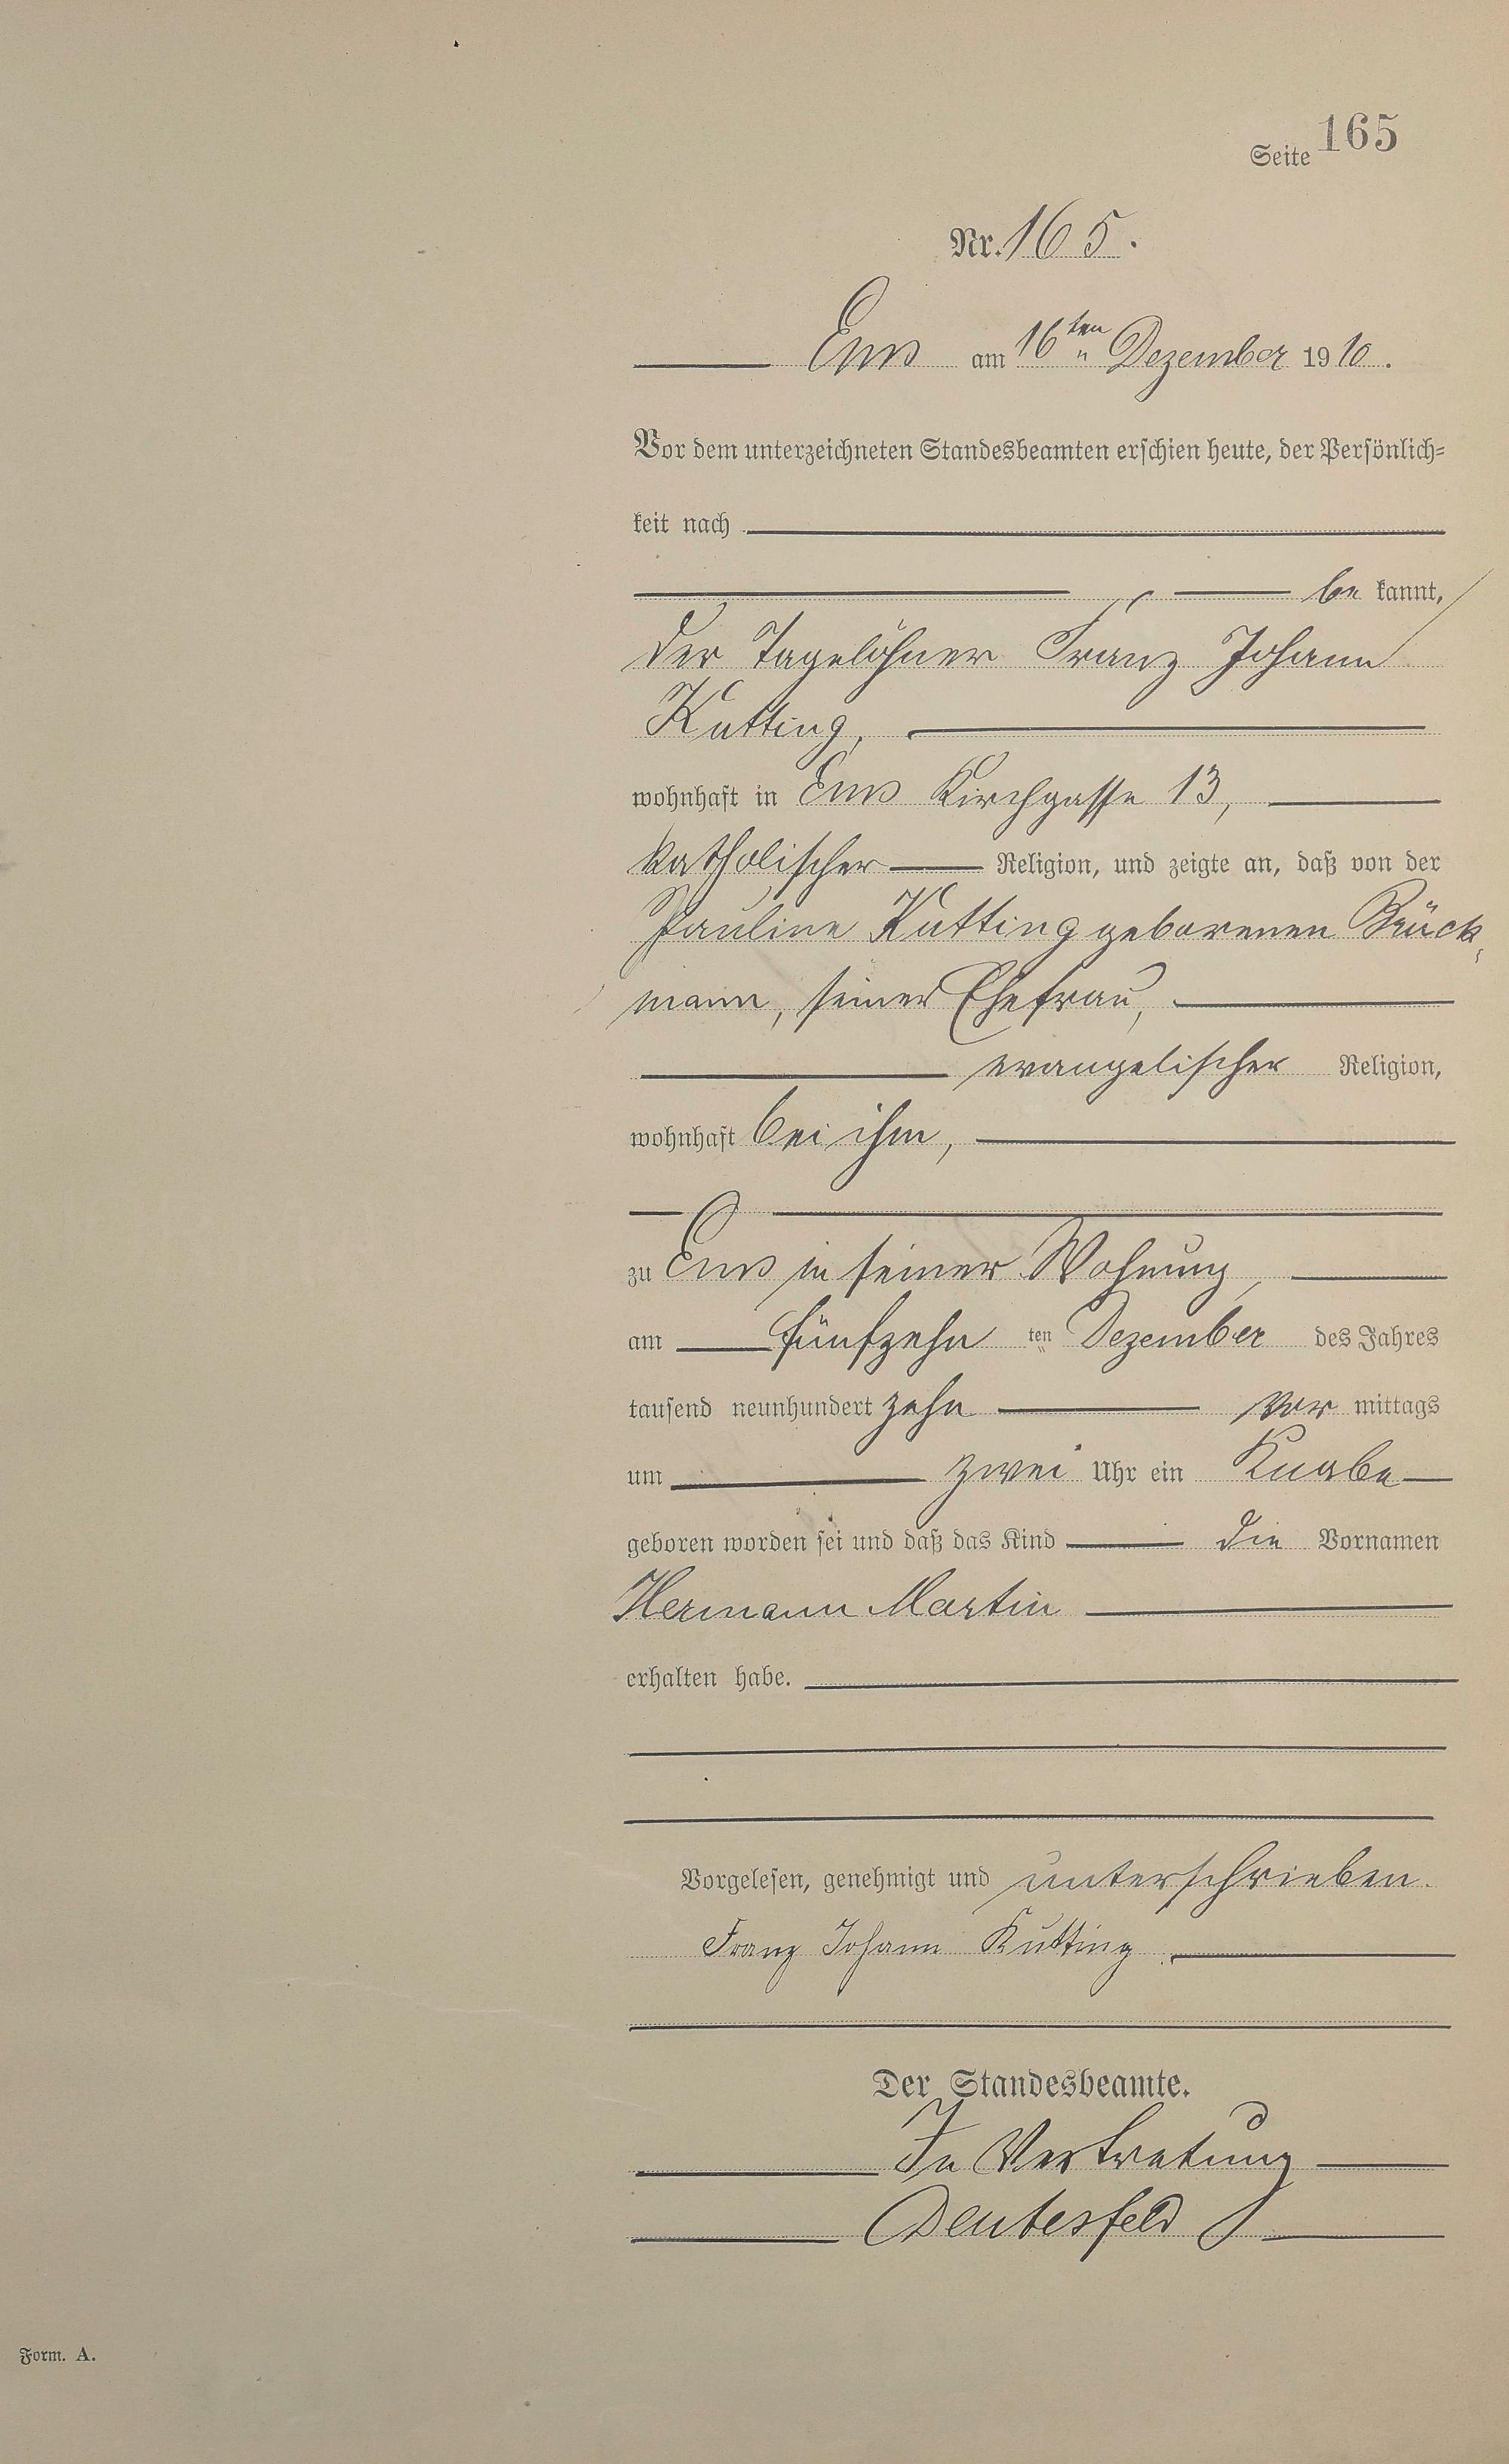 Seite 165
Nr. 165.
Ems am 16ten Dezember 1910.
Vor dem unterzeichneten Standesbeamten erschien heute, der Persönlich=
keit nach
be kannt,
der Tagelöhner Franz Johann
Kutting,
wohnhaft in Ems Kirchgasse 13,
katholischer Religion, und zeigte an, daß von der
Pauline Kutting geborenen Brück-
mann, seiner Ehefrau,
evangelischer Religion,
wohnhaft bei ihm,
zu Ems in seiner Wohnung,
am fünfzehn ten Dezember des Jahres
tausend neunhundert zehn vor mittags
um zwei Uhr ein Knabe
geboren worden sei und daß das Kind die Vornamen
Hermann Martin
erhalten habe.
Vorgelesen, genehmigt und unterschrieben.
Franz Johann Kutting
Der Standesbeamte.
In Vertretung
Deutesfeld
Form. A.